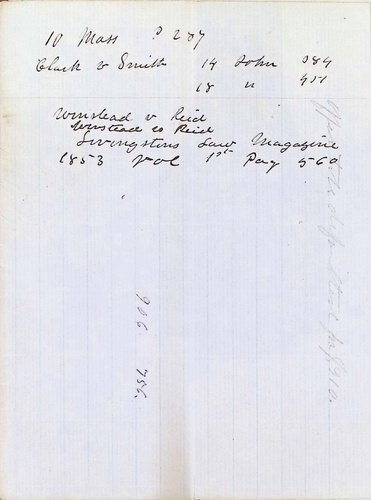 10 Mass P 287
Clark v Smith 14 John 484
18 " 451
Winstead v Reid
Winstead vs Reid
Livingstons Law Magazine
1853 Vol 1st Pag 560
906 756.